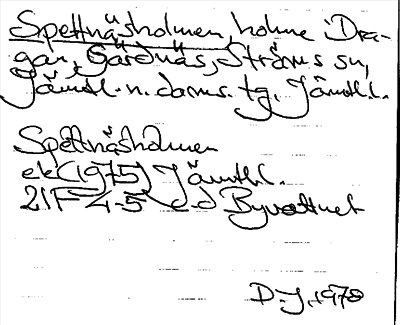 Spettnäsholmen, holme Dra-
gan, Gärdnäs, Ströms sn,
Jämtl. n. doms. tg, Jämtl.l.
Spettnäsholmen
ek (1975) Jämtl.l.
21F 4-5 c-d Byvattnet
D.J. 1978